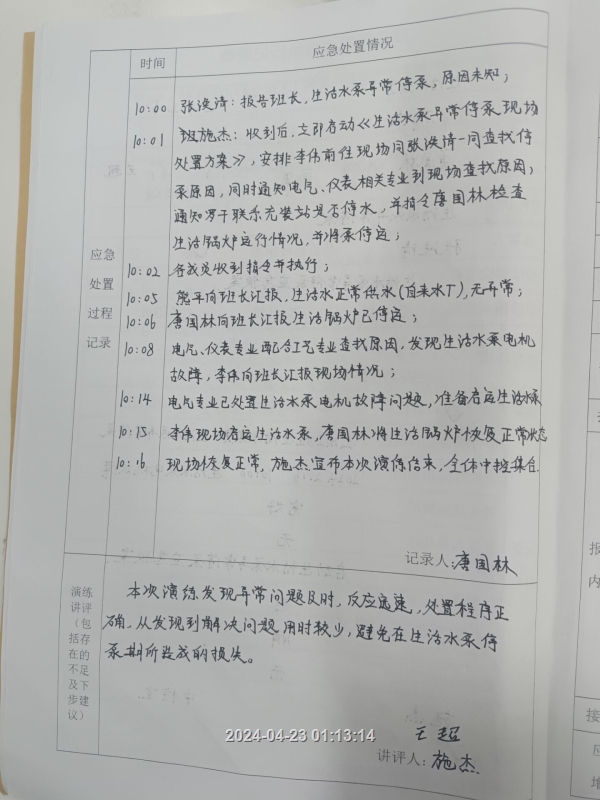 时间 应急处置情况
10:00 张浃清：报告班长，生活水泵异常停泵，原因未知；
10:01 班施杰：收到后，立即启动《生活水泵异常停泵现场
处置方案》，安排李伟前往现场同张浃清一同查找停
泵原因，同时通知电气、仪表相关专业到现场查找原因，
通知 联系充装站是否停水，并指令唐国林检查
生活锅炉运行情况，并将泵停运；
10:02 各成员收到指令并执行；
10:05 熊平向班长汇报，生活水正常供水（自来水厂），无异常；
10:06 唐国林向班长汇报生活锅炉已停运；
10:08 电气、仪表专业配合工艺专业查找原因，发现生活水泵电机
故障，李伟向班长汇报现场情况；
10:14 电气专业已处置生活水泵电机故障问题，准备启运生活水泵
10:15 李伟现场启运生活水泵，唐国林将生活锅炉恢复正常状态
10:16 现场恢复正常，施杰宣布本次演练结束，全体中控集合
应急
处置
过程
记录
记录人：唐国林
演练
讲评
（包
括存
在的
不足
及下
步建
议）
本次演练发现异常问题及时，反应迅速，处置程序正
确，从发现到解决问题用时较少，避免在生活水泵停
泵期所造成的损失。
王超
讲评人：施杰
2024-04-23 01:13:14